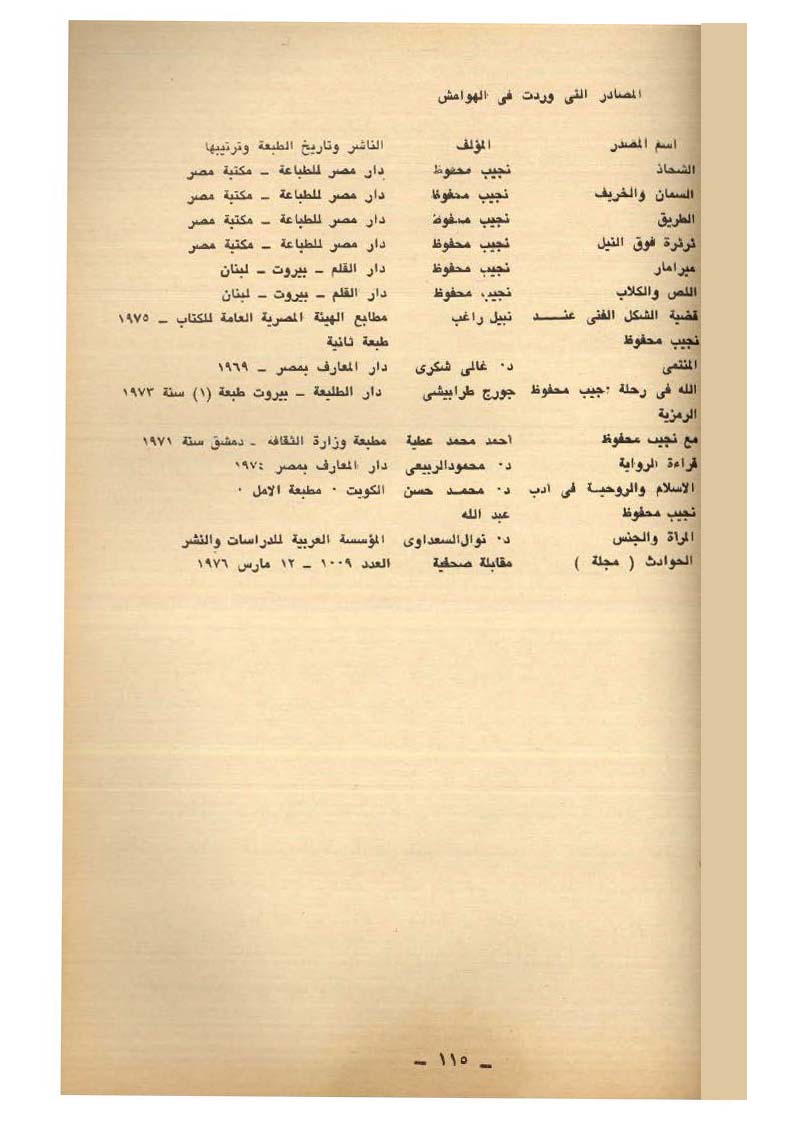 المصادر التى وردت فى الهوامش
اسم المصدر المؤلف الناشر وتاريخ الطبعة وترتيبها
الشحاذ نجيب محفوظ دار مصر للطباعة ــ مكتبة مصر
السمان والخريف نجيب محفوظ دار مصر للطباعة ــ مكتبة مصر
الطريق نجيب محفوظ دار مصر للطباعة ــ مكتبة مصر
ثرثرة فوق النيل نجيب محفوظ دار مصر للطباعة ــ مكتبة مصر
ميرامار نجيب محفوظ دار القلم ــ بيروت ــ لبنان
اللص والكلاب نجيب محفوظ دار القلم ــ بيروت ــ لبنان
قضية الشكل الفنى عنـــد نبيل راغب مطابع الهيئة المصرية العامة للكتاب ــ ١٩٧٥
نجيب محفوظ طبعة ثانية
المنتمى د٠ غالى شكرى دار المعارف بمصر ــ ١٩٦٩
الله فى رحلة نجيب محفوظ جورج طرابيشى دار الطليعة ــ بيروت طبعة (١) سنة ١٩٧٣
الرمزية
مع نجيب محفوظ احمد محمد عطية مطبعة وزارة الثقافه ــ دمشق سنة ١٩٧١
قراءة الرواية د٠ محمودالربيعى دار المعارف بمصر ١٩٧٤
الاسلام والروحيـة فى ادب د٠ محمـد حسن الكويت ٠ مطبعة الامل ٠
نجيب محفوظ عبد الله
المرأة والجنس د٠ نوال السعداوى المؤسسة العربية للدراسات والنشر
الحوادث ( مجلة ) مقابلة صحفية العدد ١٠٠٩ ــ ١٢ مارس ١٩٧٦
ــ ١١٥ ــ